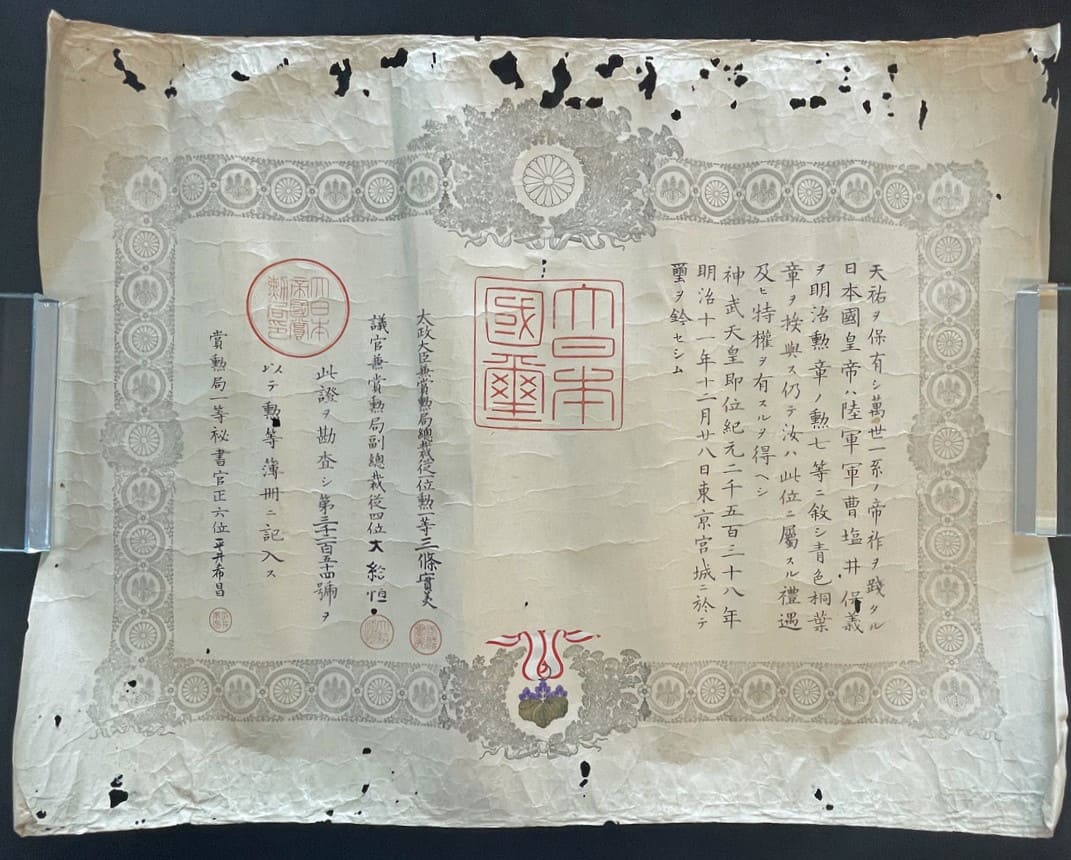 天祐ヲ保有シ萬世一系ノ帝祚ヲ踐タル
日本國皇帝ハ陸軍軍曹塩井保義
ヲ明治勲章ノ勲七等ニ敘シ青色桐葉
章ヲ授與ス仍テ汝ハ此位ニ屬スル禮遇
及ヒ特權ヲ有スルヲ得ヘシ
神武天皇即位紀元二千五百三十八年
明治十一年十二月廿八日東京宮城ニ於テ
璽ヲ鈐セシム
大日本
國璽
太政大臣兼賞勲局總裁從一位勲一等三條實美
議官兼賞勲局副總裁從四位大給恒
大日本
帝國賞
勲局印
此證ヲ勘査シ第三千二百五十四號ヲ
以テ勲等簿冊ニ記入ス
賞勲局一等祕書官正六位平井希昌